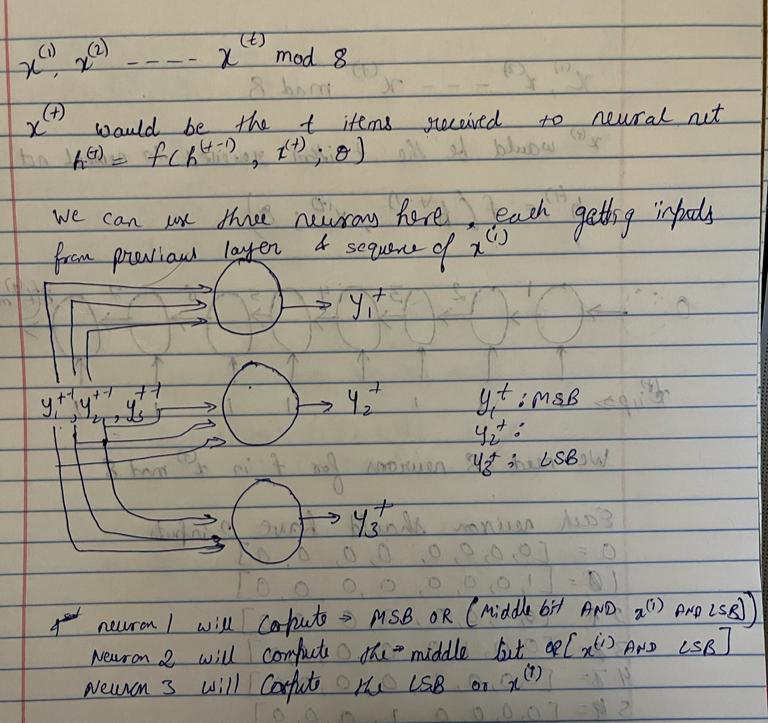 x^(1), x^(2) ---- x^(t) mod 8
x^(t) would be the t items received to neural net
h^(t) = f(h^(t-1), x^(t); θ]
We can use three neurons here, each getting inputs
from previous layer & sequence of x^(i)
y₁^t
y₁^t-1, y₂^t-1, y₃^t-1 y₂^t y₁^t : MSB
y₂^t :
y₃^t : LSB
y₃^t
neuron 1 will compute → MSB OR (Middle bit AND x^(i) AND LSB)
Neuron 2 will compute the → middle bit OR [x^(i) AND LSB]
Neuron 3 will compute the LSB or x^(i)